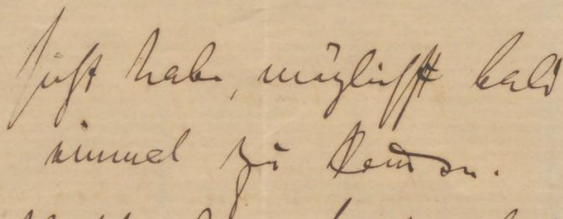 sicht habe, möglichst bald
einmal zu kom̄en.